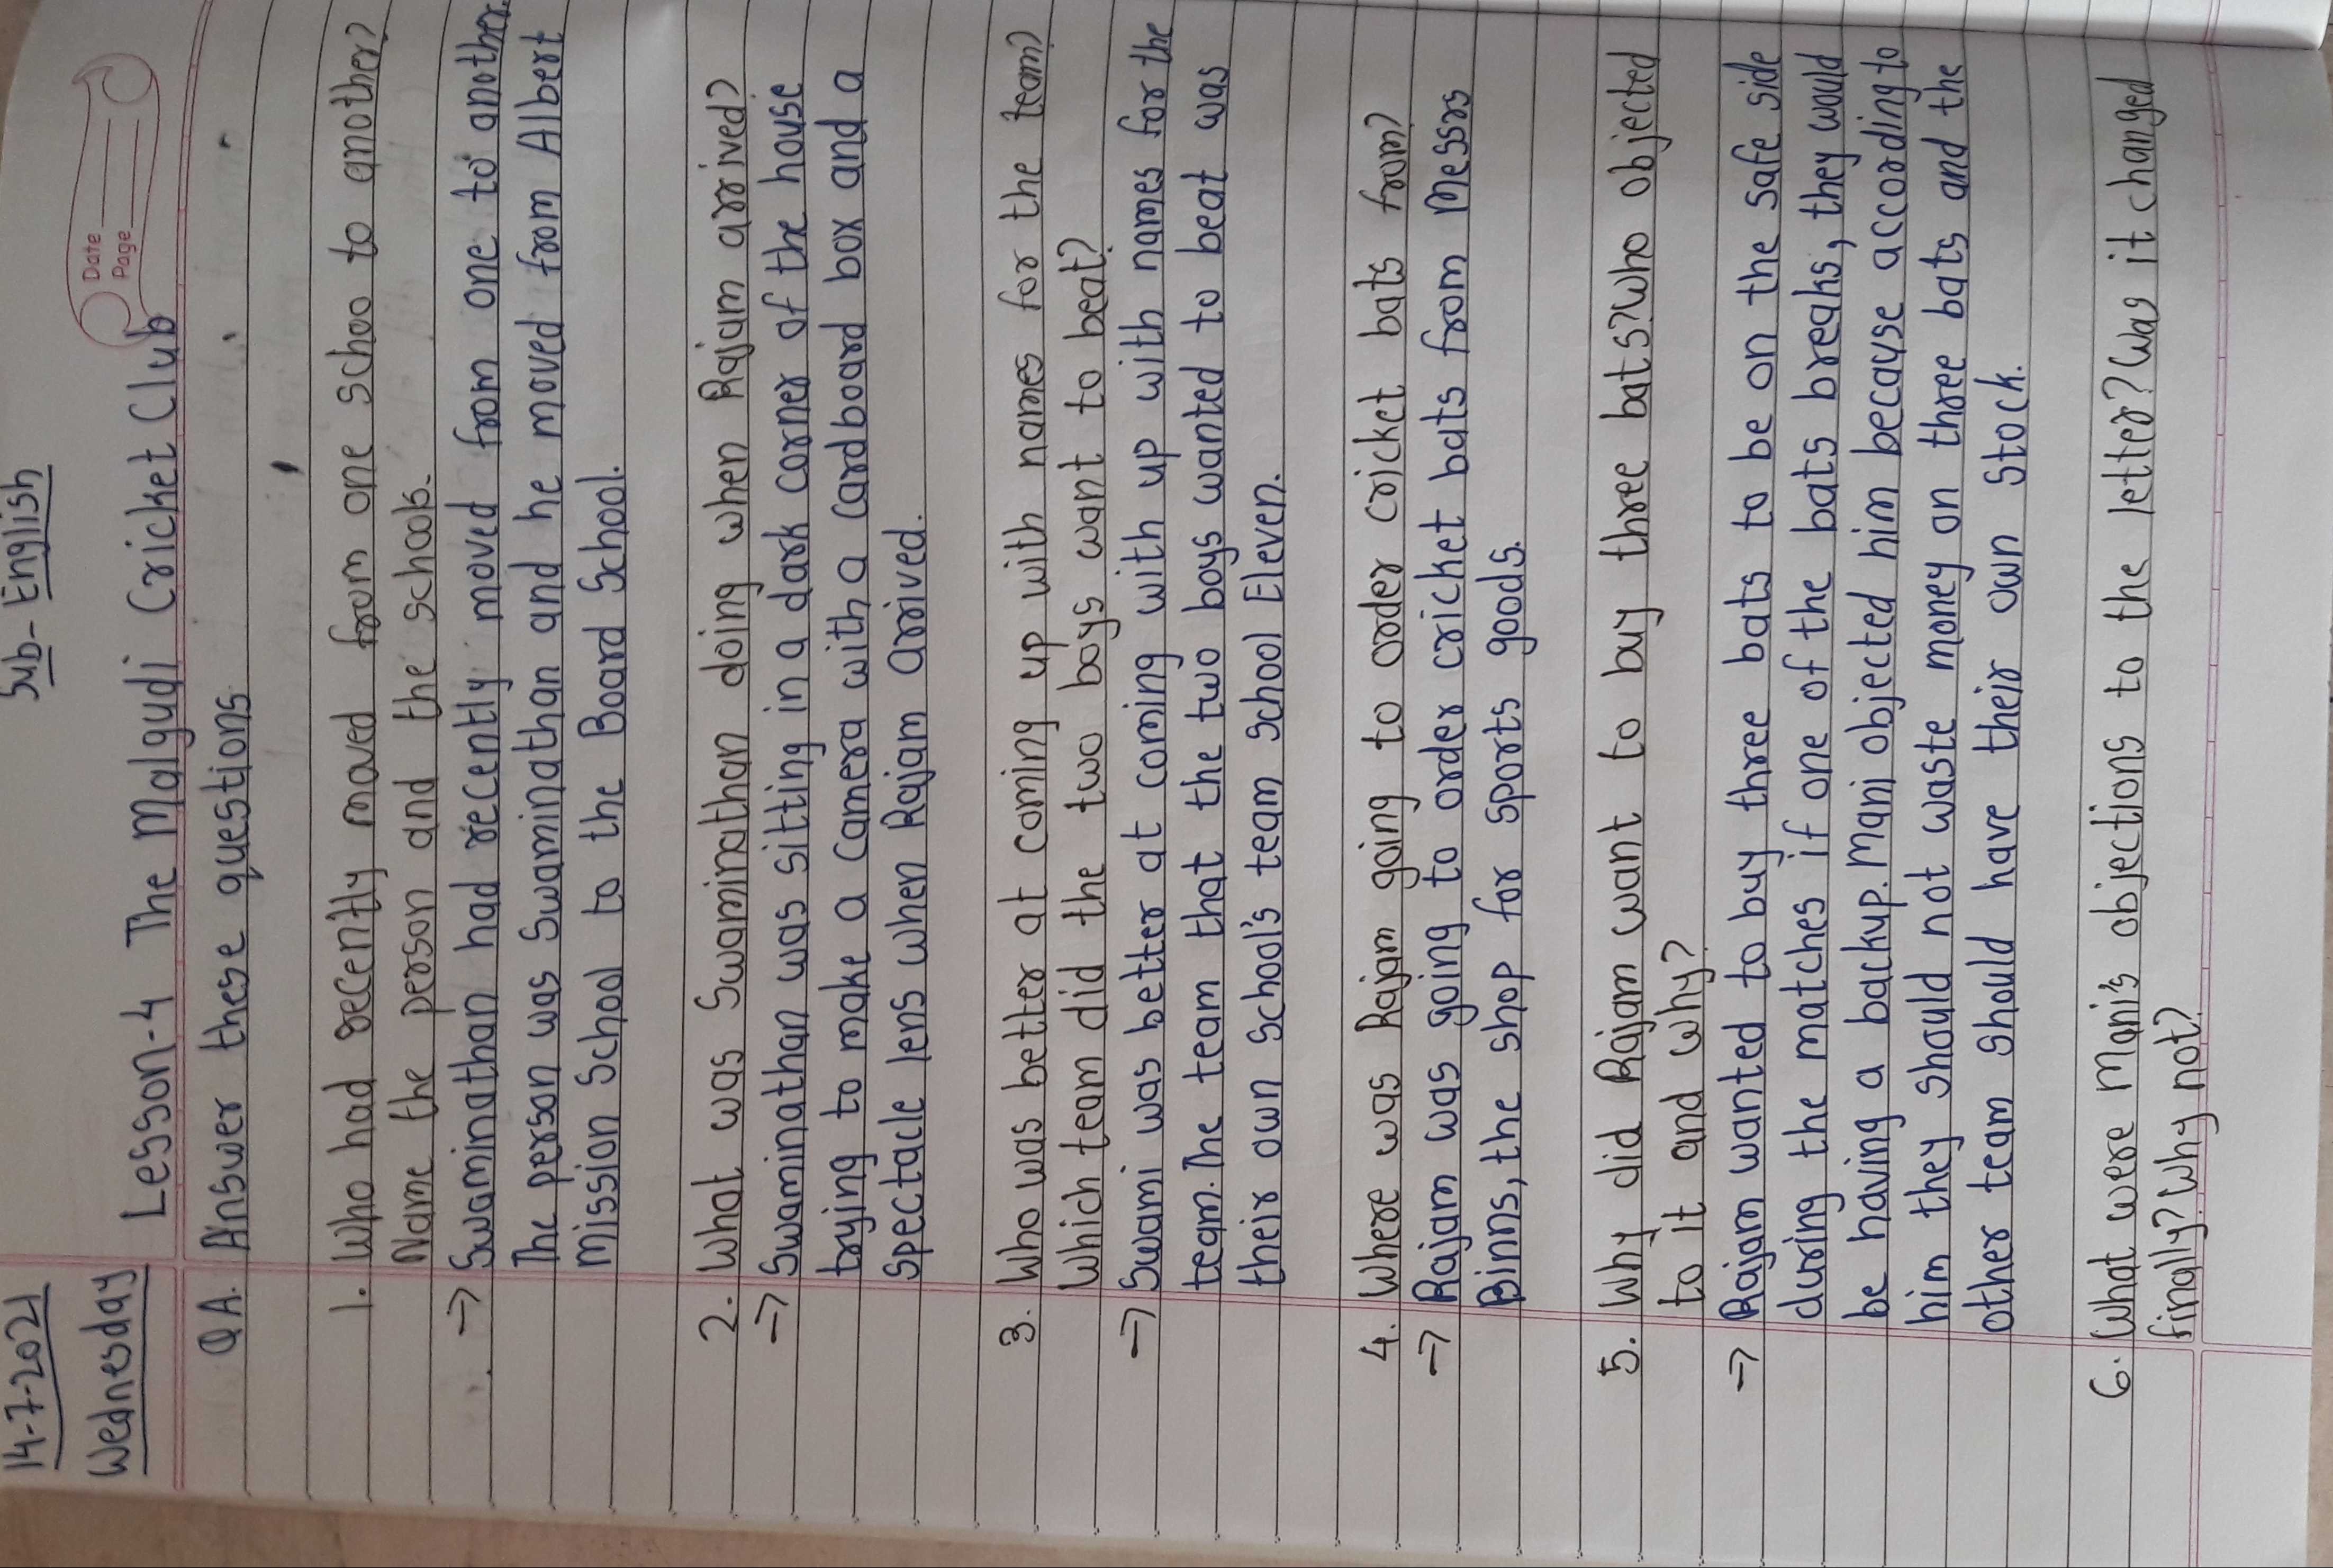 14-7-2021
Sub- English
Wednesday
Date
Page
Lesson-4 The Malgudi Cricket Club
Q A. Answer these questions.
1. Who had recently moved from one schoo to another?
Name the person and the schools.
→ Swaminathan had recently moved from one to another.
The person was Swaminathan and he moved from Albert
Mission School to the Board School.
2. What was Swaminathan doing when Rajam arrived?
→ Swaminathan was sitting in a dark corner of the house
trying to make a Camera with a cardboard box and a
spectacle lens when Rajam arrived.
3. Who was better at coming up with names for the team?
Which team did the two boys want to beat?
→ Swami was better at coming with up with names for the
team. The team that the two boys wanted to beat was
their own school's team School Eleven.
4. Where was Rajam going to order cricket bats from?
→ Rajam was going to order cricket bats from Messrs
Binns, the shop for sports goods.
5. Why did Rajam want to buy three bats? Who objected
to it and why?
→ Rajam wanted to buy three bats to be on the safe side
during the matches if one of the bats breaks, they would
be having a backup. Mani objected him because according to
him they should not waste money on three bats and the
other team should have their own stock.
6. What were Mani's objections to the letter? Was it changed
finally? Why not?